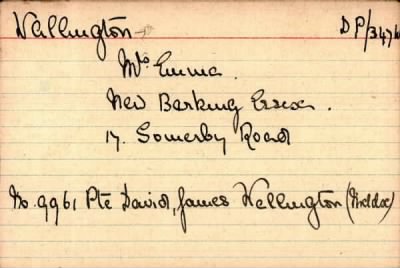 Wallington D P/347
Mrs Emma.
New Barking Essex.
17. Somerby Road
No. 9961 Pte David, James Wellington